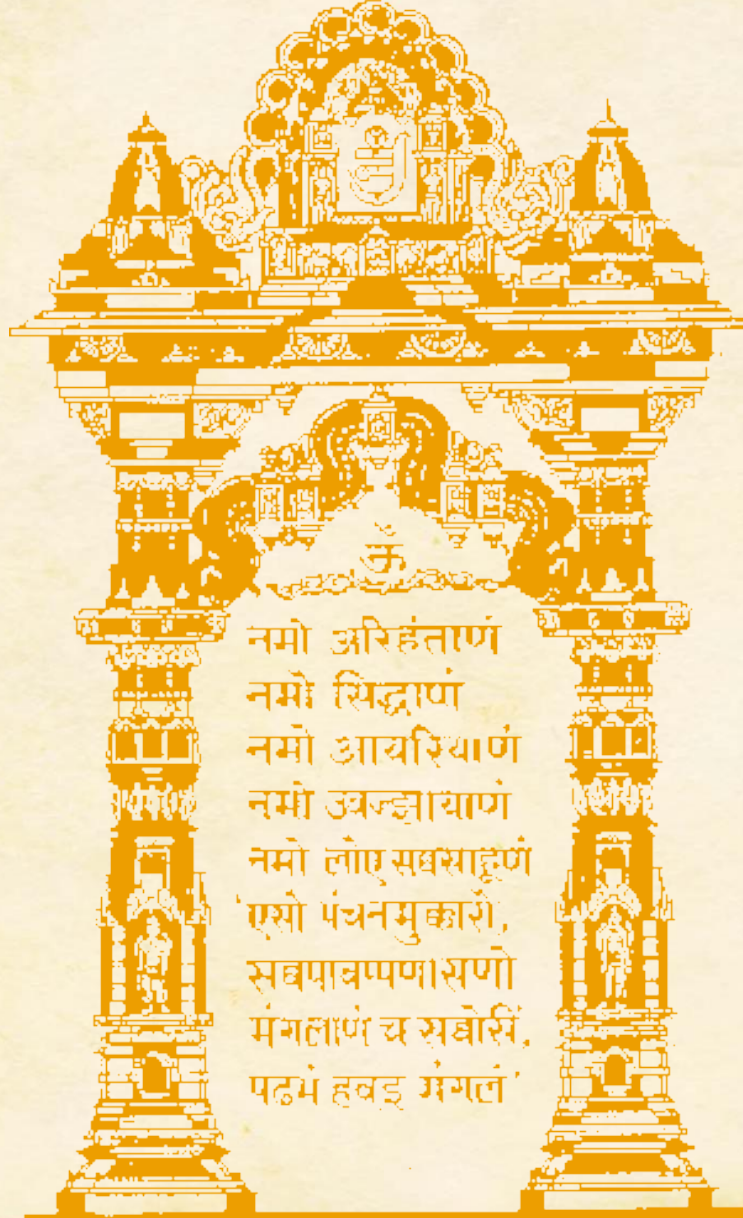 ॐ
नमो अरिहंताणं
नमो सिद्धाणं
नमो आयरियाणं
नमो उवज्झायाणं
नमो लोए सव्वसाहूणं
एसो पंचनमुक्कारो,
सव्वपावप्पणासणो
मंगलाणं च सव्वेसिं,
पढमं हवइ मंगलं